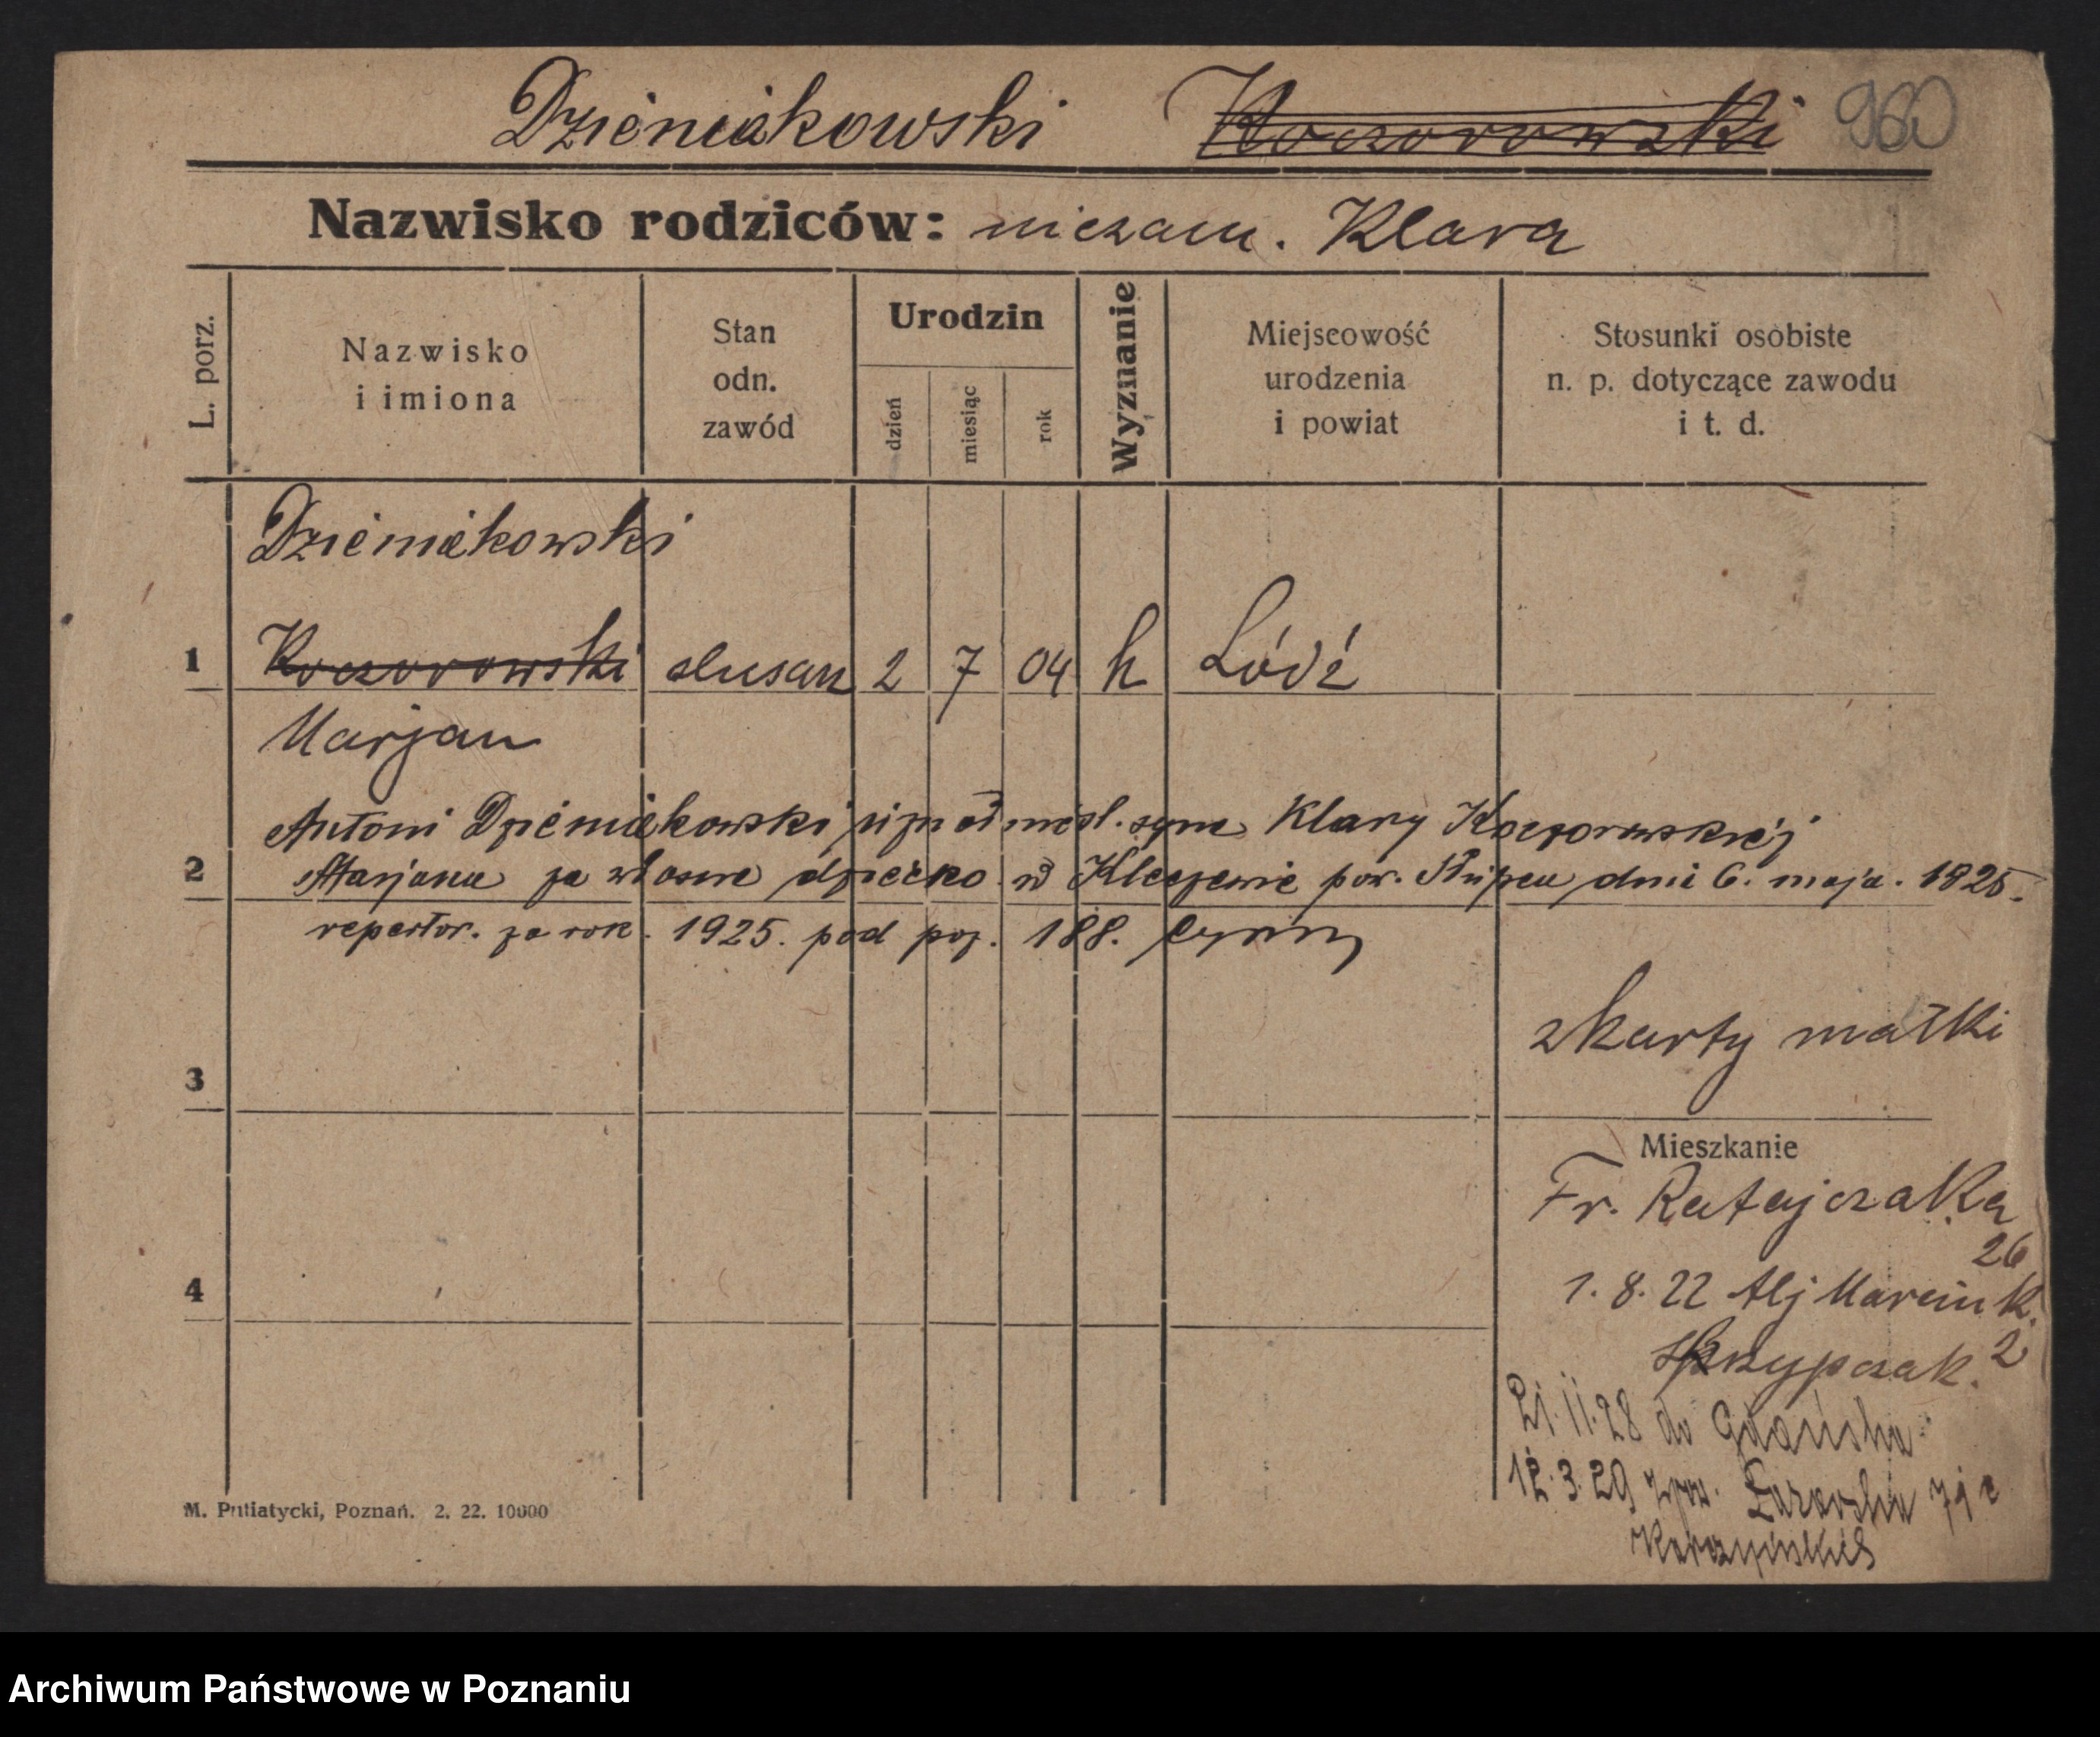 Dzieniakowski Koczorowski 960
Nazwisko rodziców: niezam. Klara
L. porz.
Nazwisko
i imiona
Stan
odn.
zawód
Urodzin
dzień
miesiąc
rok
Wyznanie
Miejscowość
urodzenia
i powiat
Stosunki osobiste
n. p. dotyczące zawodu
i t. d.
Dzieniakowski
1 Koczorowski slusarz 2 7 04 k Łódź
Marjan
Antoni Dzieniakowski uznał nieśl. syna Klary Koczorowskiej
2 Marjana za własne dziecko w Kleczewie pow. Słupcu dnia 6. maja. 1825.
repertor. za rok. 1925. pod poz. 188.
z karty matki
3
Mieszkanie
Fr. Ratajczaka
26
4
1. 8. 22 Alj Marcink.
Skrzypczak. 2
21.11.28 do Gdańska
12.3.29
M. Putiatycki, Poznań. 2. 22. 10000
Archiwum Państwowe w Poznaniu